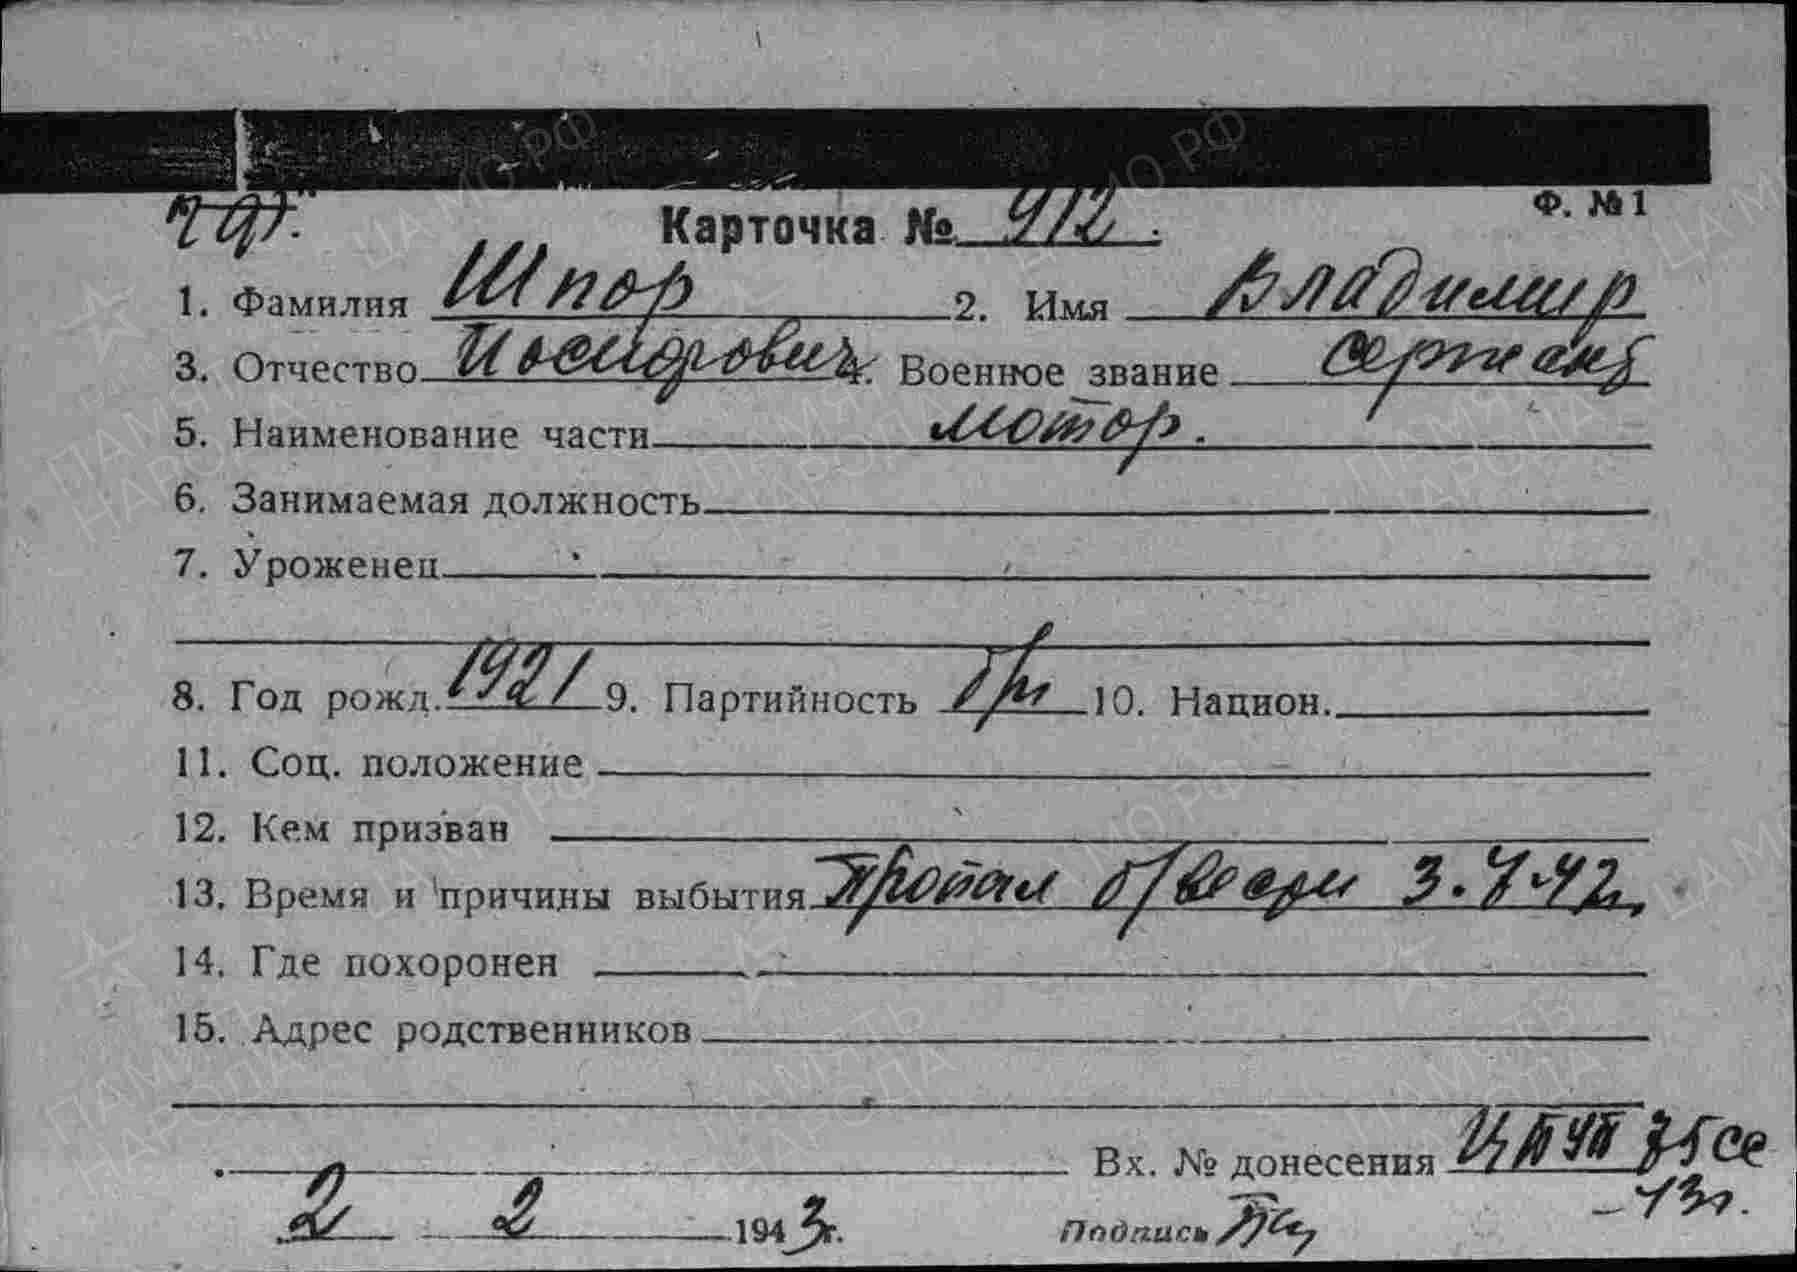 Ф. №1
Карточка № 912
1. Фамилия Шпор 2. Имя Владимир
3. Отчество Иосифович 4. Военное звание сержант
5. Наименование части мотор.
6. Занимаемая должность
7. Уроженец
8. Год рожд. 1921 9. Партийность б/п 10. Национ.
11. Соц. положение
12. Кем призван
13. Время и причины выбытия пропал б/вести 3.7.42г.
14. Где похоронен
15. Адрес родственников
Вх. № донесения 75сс
-43г.
2 2 1943г. Подпись